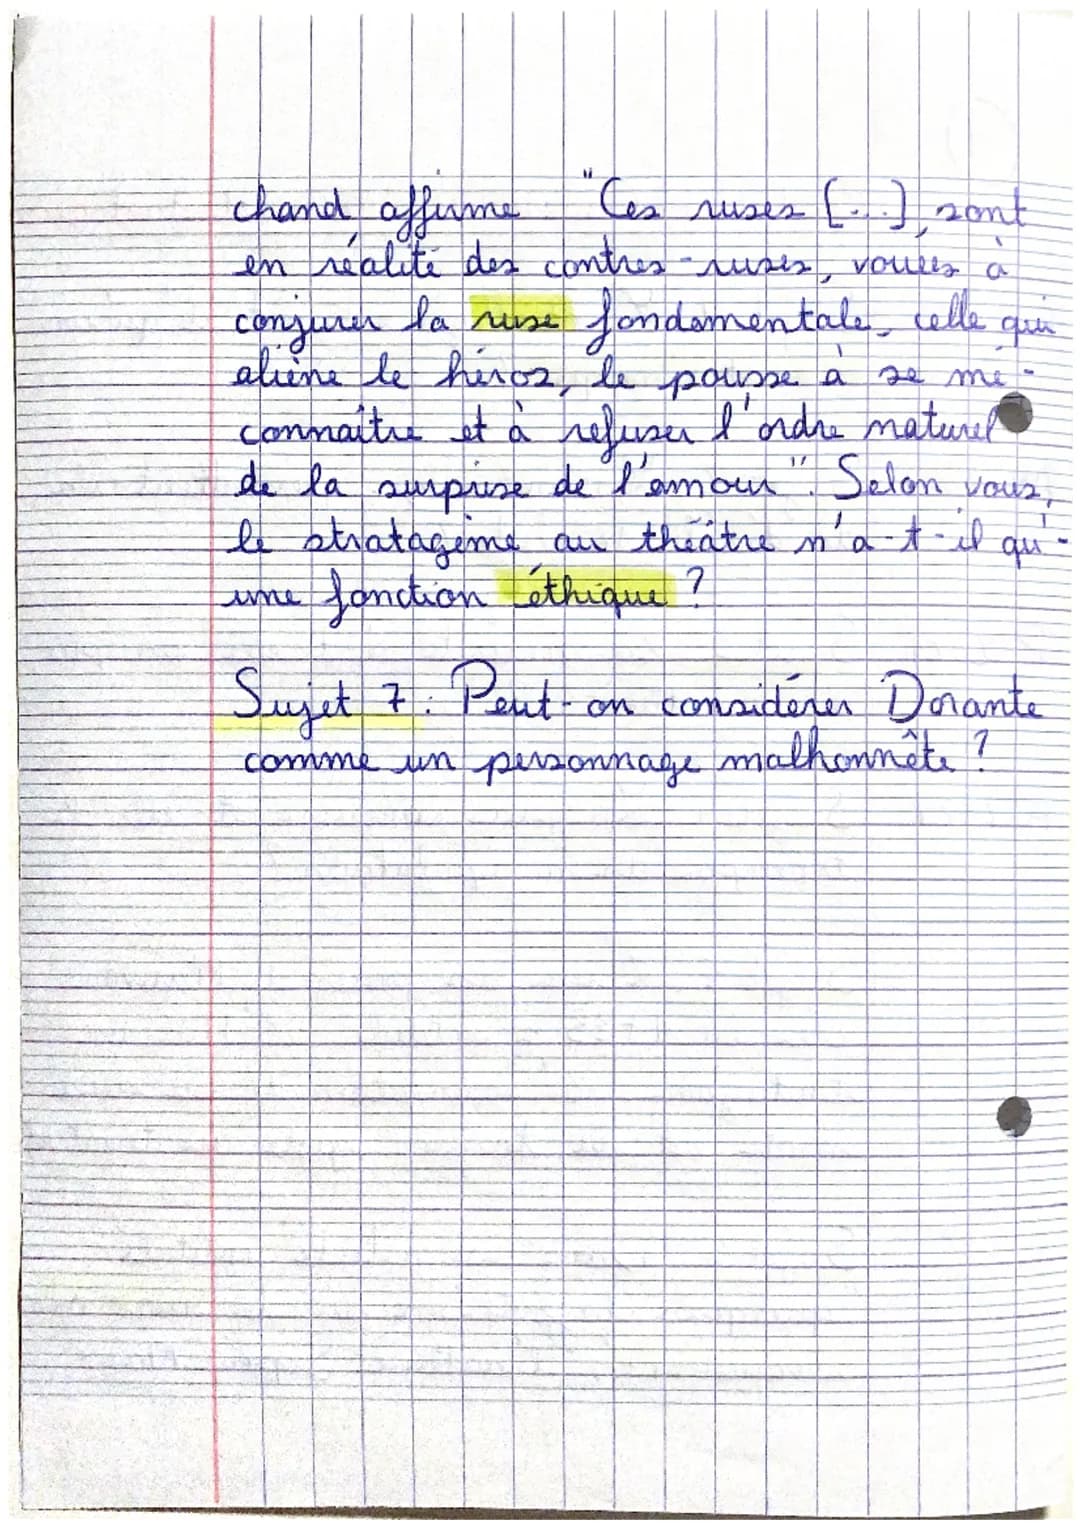 chand affirme "Ces ruses [...], sont
en réalité des contres-ruses, vouées à
conjurer la ruse fondamentale, celle qui
aliène le héros, le pousse à se mé-
connaître et à refuser l'ordre naturel
de la surprise de l'amour". Selon vous,
le stratagème au théâtre n'a-t-il qu'-
une fonction éthique ?
Sujet 7 : Peut-on considérer Dorante
comme un personnage malhonnête ?